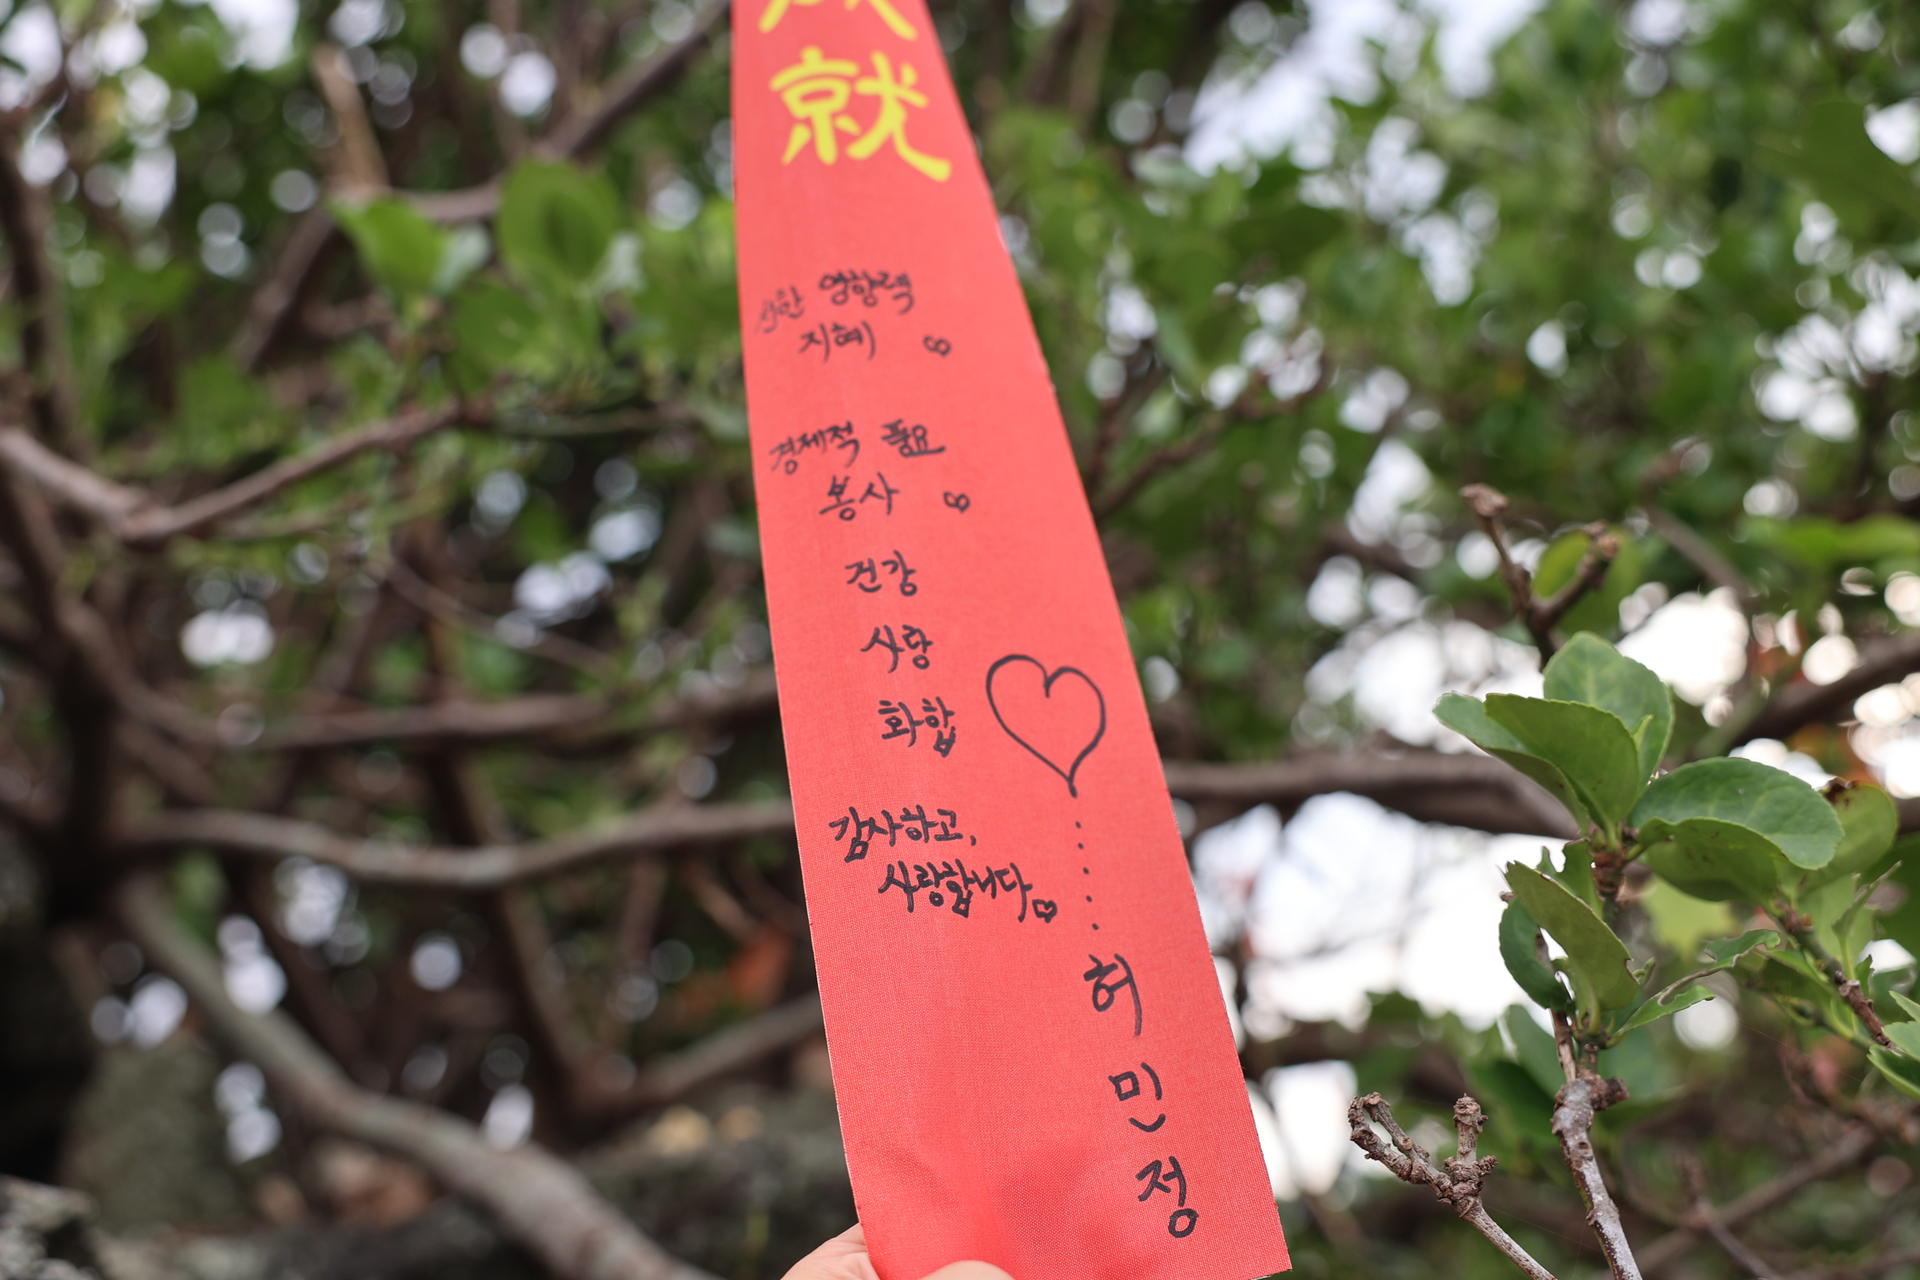 成就
선한 영향력
지혜
경제적 풍요
봉사
건강
사랑
화합
감사하고,
사랑합니다
허민정